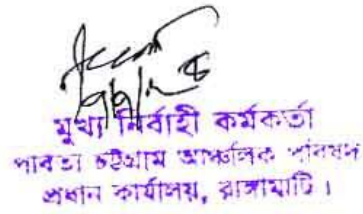 মুখ্য নির্বাহী কর্মকর্তা
পার্বত্য চট্টগ্রাম আঞ্চলিক পরিষদ
প্রধান কার্যালয়, রাঙ্গামাটি।